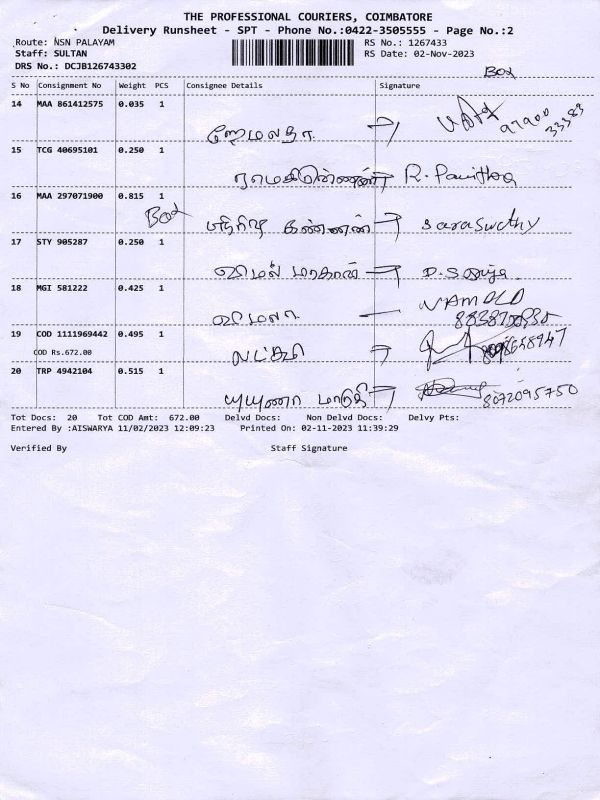 THE PROFESSIONAL COURIERS, COIMBATORE
Delivery Runsheet - SPT - Phone No.:0422-3505555 - Page No.:2
Route: NSN PALAYAM RS No.: 1267433
Staff: SULTAN RS Date: 02-Nov-2023
DRS No.: DCJB126743302
Box
S No Consignment No Weight PCS Consignee Details Signature
14 MAA 861412575 0.035 1
ஹேமலதா 97900 33383
15 TCG 40695101 0.250 1
R. Pavithra
16 MAA 297071900 0.815 1
Box கண்ணன் saraswathy
17 STY 905287 0.250 1
18 MGI 581222 0.425 1
விமலா
19 COD 1111969442 0.495 1
COD Rs.672.00 லட்சுமி
20 TRP 4942104 0.515 1
8072095750
Tot Docs: 20 Tot COD Amt: 672.00 Delvd Docs: Non Delvd Docs: Delvy Pts:
Entered By :AISWARYA 11/02/2023 12:09:23 Printed On: 02-11-2023 11:39:29
Verified By Staff Signature